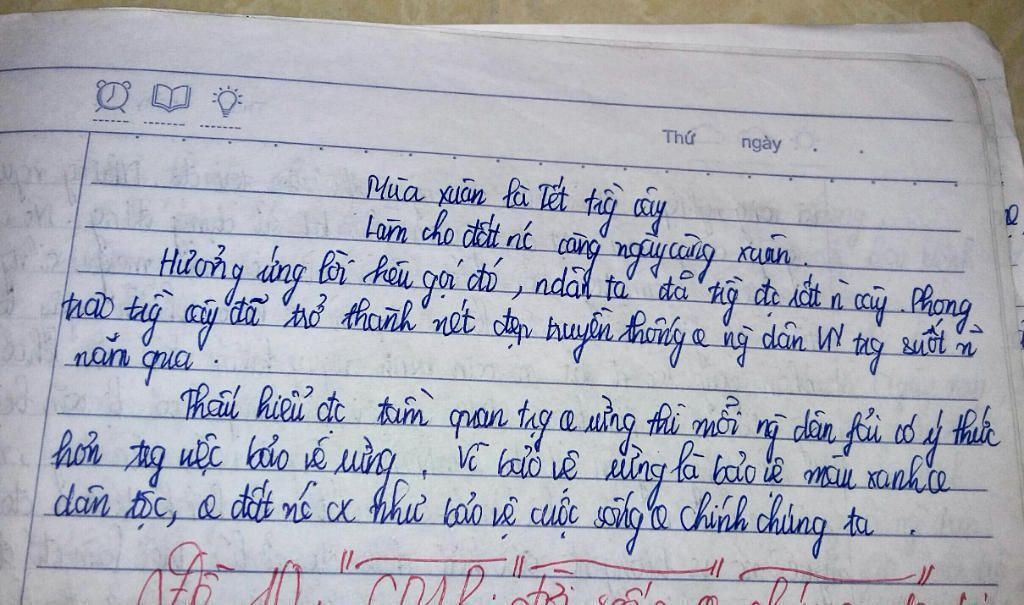 Thứ ngày
Mùa xuân là Tết tr̀g cây
Làm cho đất nc càng ngày càng xuân.
Hưởng ứng lời kêu gọi đó, ndân ta đã tr̀g đc rất ǹ cây. Phong
trào tr̀g cây đã trở thành nét đẹp truyền thống ng dân VN trg suốt ǹ
năm qua.
Thấu hiểu đc tầm quan trg rừng thì mỗi ng dân fải có ý thức
hơn trg việc bảo vệ rừng. Vì bảo vệ rừng là bảo vệ màu xanh
dân tộc, đất nc cx như bảo vệ cuộc sống chính chúng ta.